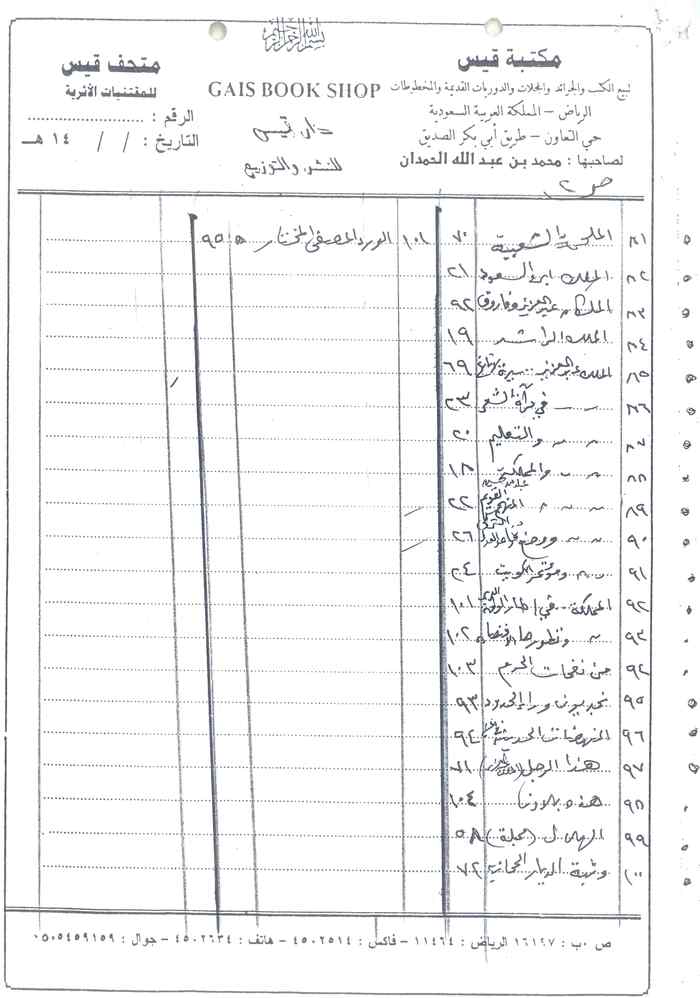 بسم الله الرحمن الرحيم
مكتبة قيس
متحف قيس
GAIS BOOK SHOP
لبيع الكتب والجرائد والمجلات والدوريات القديمة والمخطوطات
للمقتنيات الأثرية
الرياض – المملكة العربية السعودية
الرقم :
دار قيس
حي التعاون – طريق أبي بكر الصديق
التاريخ : / / ١٤ هـ
للنشر والتوزيع
لصاحبها : محمد بن عبد الله الحمدان
ص ٢
٨١ الملحمة الشعبية ٧٠ ١٠١ الورد المصفى المختار ٩٥
٨٢ الملك ابن السعود ٢١
٨٣ الملكان عبد العزيز وفاروق ٩٢
٨٤ الملك الراشد ١٩
٨٥ الملك عبد العزيز .. سيرة ٦٩
٨٦ " " في مرآة الشعر ٢٣
٨٧ " " والتعليم ٢٠
٨٨ " " والمملكة ١٨
٨٩ " " " المنهج القويم ٢٢
٩٠ " " ووضع ٢٦
٩١ " " ومؤتمر الكويت ٢٤
٩٢ المملكة في إطار ١٠١
٩٣ " وتطورها ١٠٢
٩٤ من نفحات الحرم ١٠٣
٩٥ نجديون وراء الحدود ٩٣
٩٦ الحديثة ٩٤
٩٧ هذا الرجل ٧١
٩٨ هذه بلادنا ١٠٤
٩٩ الهلال (مجلة) ٥٨
١٠٠ الديار الحجازية ٧٢
ص . ب : ١٦١٩٧ الرياض : ١١٤٦٤ – فاكس : ٤٥٠٢٥١٤ – هاتف : ٤٥٠٢٦٣٤ – جوال : ٠٥٠٥٤٥٩١٥٩